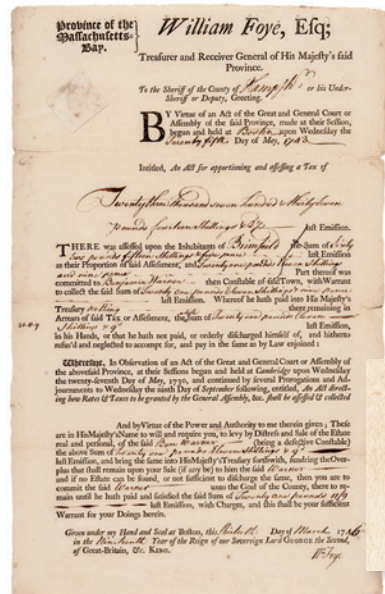 Province of the
Massachusetts-
Bay.
William Foye, Esq;
Treasurer and Receiver General of His Majesty's said
Province.
To the Sheriff of the County of Hampshr. or his Under-
Sheriff or Deputy, Greeting.
BY Virtue of an Act of the Great and General Court or
Assembly of the said Province, made at their Session,
begun and held at Boston upon Wednesday the
Twenty fifth Day of May, 174
Intitled, An Act for apportioning and assessing a Tax of
Twenty three thousand seven hundred & thirty seven
pounds fourteen shillings & last Emission.
THERE was assessed upon the Inhabitants of Brimfield the Sum of Sixty
two pounds fifteen shillings & five pence last Emission
as their Proportion of said Assessment, and Twenty one pounds eleven shillings
and nine pence Part thereof was
committed to Benjamin Warner then Constable of said Town, with Warrant
to collect the said Sum of Twenty one pounds eleven shillings nine pence
last Emission. Whereof he hath paid into His Majesty's
Treasury nothing there remaining in
Arrears of said Tax or Assessment, the Sum of Twenty one pounds Eleven
21.11.9 shillings & 9d last Emission,
in his Hands, or that he hath not paid, or orderly discharged himself of, and hitherto
refus'd and neglected to accompt for, and pay in the same as by Law enjoined:
Wherefore, In Observation of an Act of the Great and General Court or Assembly of
the abovesaid Province, at their Session begun and held at Cambridge upon Wednesday
the twenty-seventh Day of May, 1730, and continued by several Prorogations and Ad-
journments to Wednesday the ninth Day of September following, entitled, An Act direct-
ing how Rates & Taxes to be granted by the General Assembly, &c. shall be assessed & collected
And by Virtue of the Power and Authority to me therein given; These
are in His Majesty's Name to will and require you, to levy by Distress and Sale of the Estate
real and personal, of the said Ben Warner (being a defective Constable)
the above Sum of Twenty one pounds Eleven Shillings & 9d
last Emission, and bring the same into His Majesty's Treasury forthwith, rendring the Over-
plus that shall remain upon your Sale (if any be) to him the said Warner
and if no Estate can be found, or not sufficient to discharge the same, then you are to
commit the said Warner unto the Goal of the County, there to re-
main until he hath paid and satisfied the said Sum of Twenty one pounds 11/9
last Emission, with Charges, and this shall be your sufficient
Warrant for your Doings herein.
Given under my Hand and Seal at Boston, this Day of March 1746
in the Nineteenth Year of the Reign of our Sovereign Lord GEORGE the Second,
of Great-Britain, &c. KING.
Wm Foye